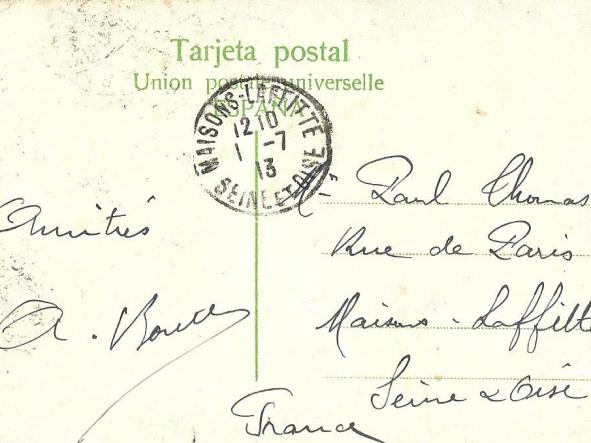 Tarjeta postal
Union postale universelle
ESPAÑA
MAISONS-LAFFITTE
12 10
1 -7
13
SEINE ET OISE
Amitiés
A.
Paul Thomas
Rue de Paris
Maisons-Laffitte
Seine & Oise
France